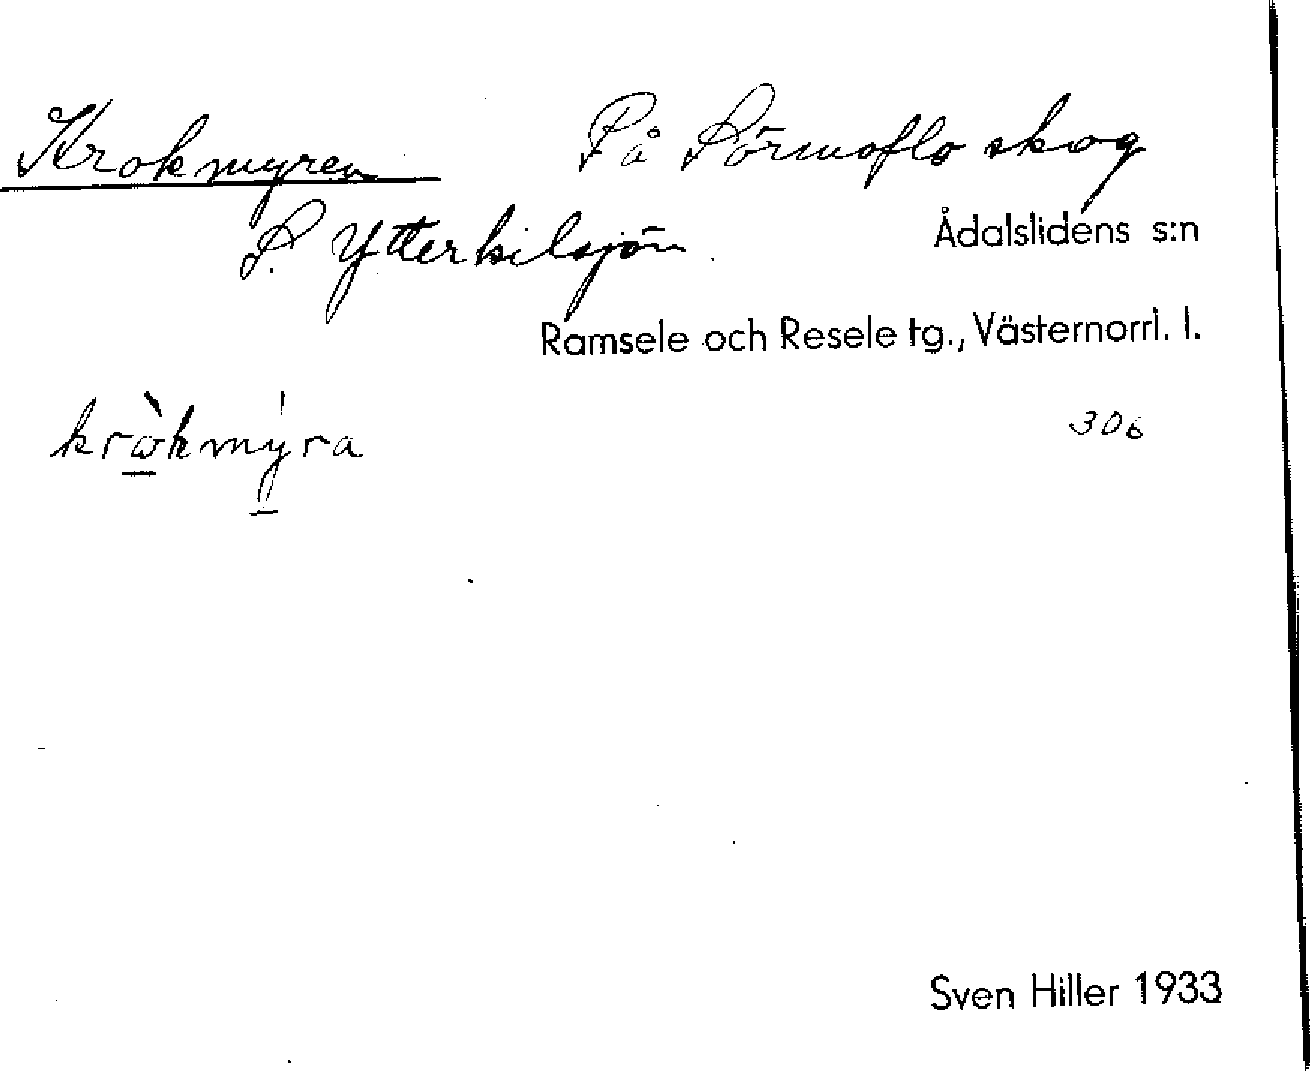 Krokmyren På Sörmoflo skog
S. Ytterkilsjön Ådalslidens s:n
Ramsele och Resele tg., Västernorrl. l.
kròkmy̍ra 306
Sven Hiller 1933